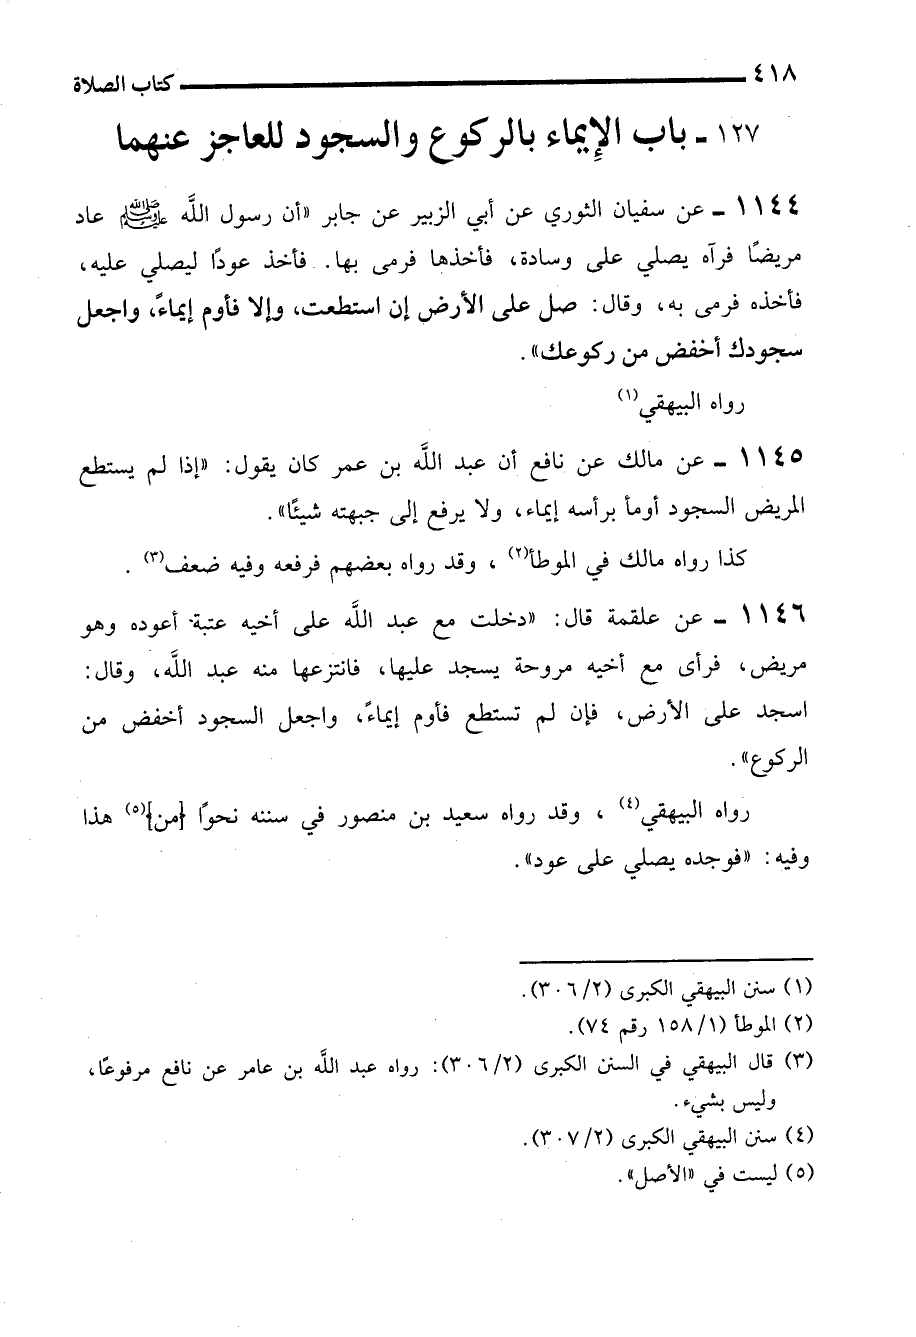 ٤١٨ كتاب الصلاة
١٢٧ ـ باب الإِيماء بالركوع والسجود للعاجز عنهما
١١٤٤ ـ عن سفيان الثوري عن أبي الزبير عن جابر «أن رسول اللَّه ﷺ عاد
مريضًا فرآه يصلي على وسادة، فأخذها فرمى بها. فأخذ عودًا ليصلي عليه،
فأخذه فرمى به، وقال: صل على الأرض إن استطعت، وإلا فأوم إيماءً، واجعل
سجودك أخفض من ركوعك».
رواه البيهقي(١)
١١٤٥ ـ عن مالك عن نافع أن عبد اللَّه بن عمر كان يقول: «إذا لم يستطع
المريض السجود أومأ برأسه إيماء، ولا يرفع إلى جبهته شيئًا».
كذا رواه مالك في الموطأ(٢) ، وقد رواه بعضهم فرفعه وفيه ضعف(٣) .
١١٤٦ ـ عن علقمة قال: «دخلت مع عبد اللَّه على أخيه عتبة أعوده وهو
مريض، فرأى مع أخيه مروحة يسجد عليها، فانتزعها منه عبد اللَّه، وقال:
اسجد على الأرض، فإن لم تستطع فأوم إيماءً، واجعل السجود أخفض من
الركوع».
رواه البيهقي(٤) ، وقد رواه سعيد بن منصور في سننه نحوًا {من}(٥) هذا
وفيه: «فوجده يصلي على عود».
(١) سنن البيهقي الكبرى (٣٠٦/٢).
(٢) الموطأ (١٥٨/١ رقم ٧٤).
(٣) قال البيهقي في السنن الكبرى (٣٠٦/٢): رواه عبد اللَّه بن عامر عن نافع مرفوعًا،
وليس بشيء.
(٤) سنن البيهقي الكبرى (٣٠٧/٢).
(٥) ليست في «الأصل».